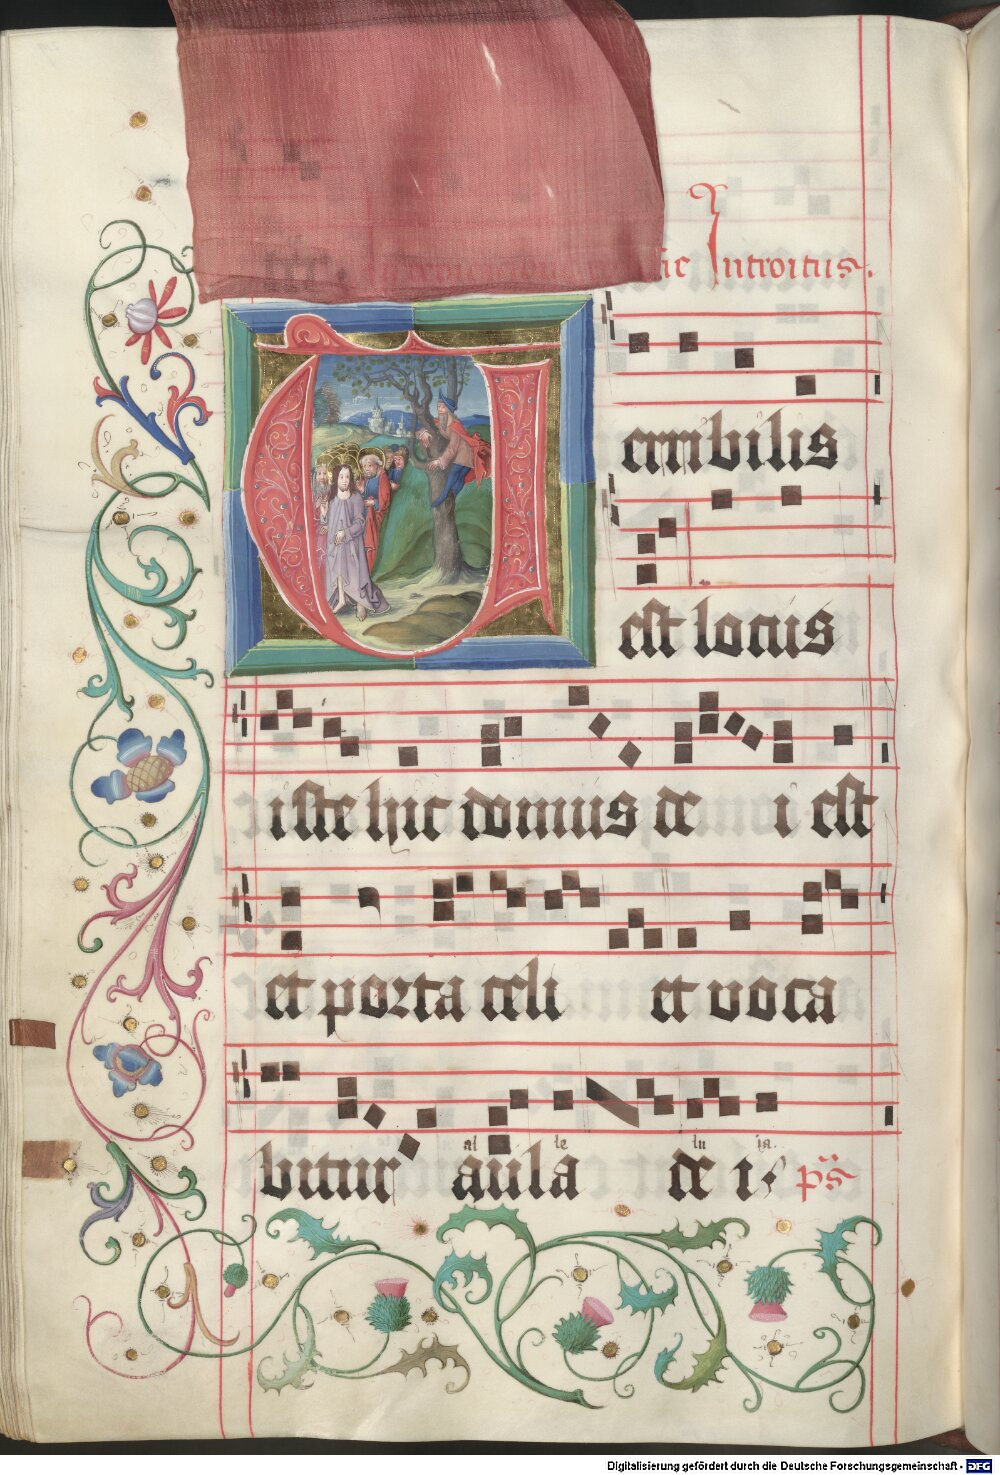 Introitus.
Terribilis
est locus
iste hic domus de i est
et porta celi et voca
al le lu ia.
bitur aula de i ps
Digitalisierung gefördert durch die Deutsche Forschungsgemeinschaft - DFG